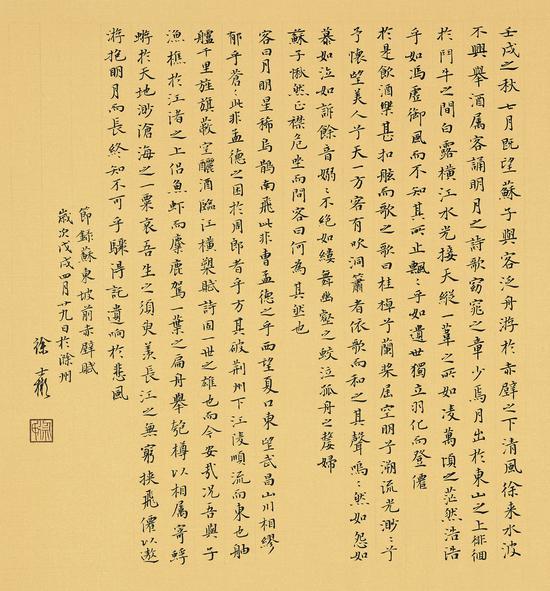 壬戌之秋七月既望蘇子與客泛舟游於赤壁之下清風徐来水波
不興舉酒属客誦明月之詩歌窈窕之章少焉月出於東山之上徘徊
於斗牛之間白露橫江水光接天縱一葦之所如凌萬頃之茫然浩浩
乎如馮虛御風而不知其所止飄〻乎如遺世獨立羽化而登僊
於是飲酒樂甚扣舷而歌之歌曰桂棹兮蘭槳空明兮溯流光渺〻兮
予懷望美人兮天一方客有吹洞簫者依歌而和之其聲嗚〻然如怨如
慕如泣如訴餘音嫋〻不絕如縷舞幽壑之蛟泣孤舟之嫠婦
蘇子愀然正襟危坐而問客曰何為其然也
客曰月明星稀烏鵲南飛此非曹孟德之乎西望夏口東望武昌山川相繆
郁乎蒼〻此非孟德之困於周郎者乎方其破荊州下江陵順流而東也舳
艫千里旌旗蔽空釃酒臨江橫槊賦詩固一世之雄也而今安哉況吾與子
漁樵於江渚之上侶魚虾而麋鹿駕一葉之扁舟舉匏樽以相属寄蜉
蝣於天地渺滄海之一粟哀吾生之須臾羨長江之無窮挾飛僊以遨
游抱明月而長終知不可乎驟得託遺響於悲風
節錄蘇東坡前赤壁賦
歲次戊戌四月廿九日於滁州
徐